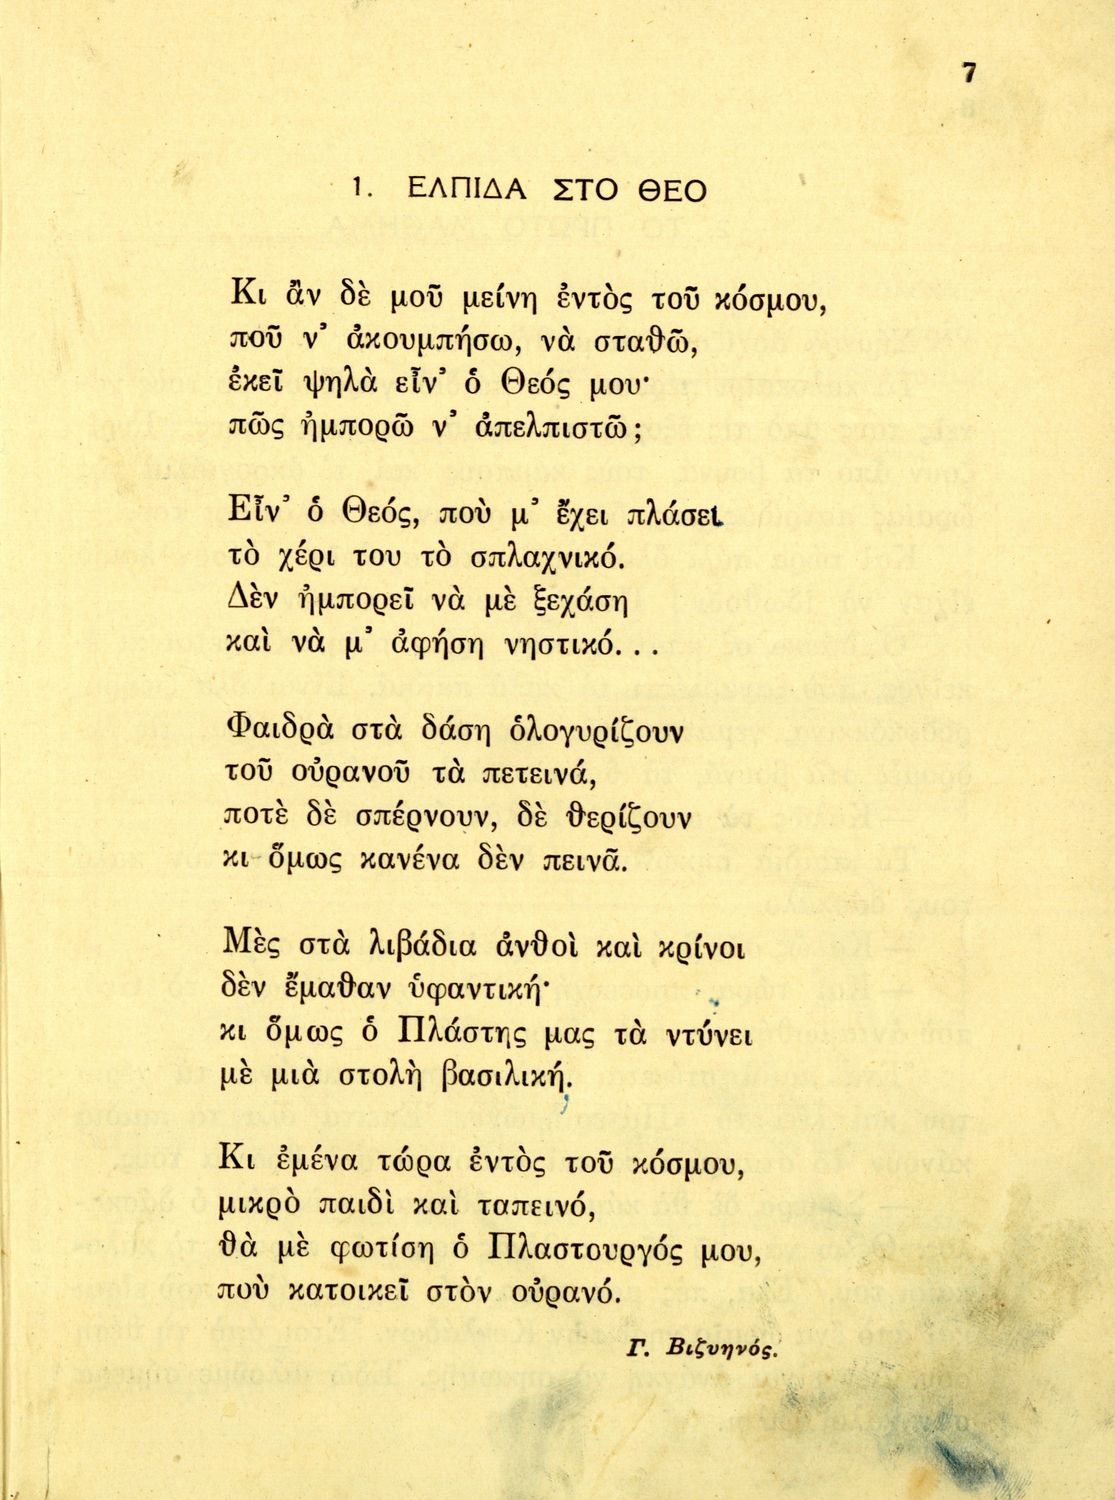 7
1. ΕΛΠΙΔΑ ΣΤΟ ΘΕΟ
Κι ἂν δὲ μοῦ μείνη ἐντὸς τοῦ κόσμου,
ποῦ ν' ἀκουμπήσω, νὰ σταθῶ,
ἐκεῖ ψηλὰ εἶν' ὁ Θεός μου·
πῶς ἠμπορῶ ν' ἀπελπιστῶ;
Εἶν' ὁ Θεός, ποὺ μ' ἔχει πλάσει
τὸ χέρι του τὸ σπλαχνικό.
Δὲν ἠμπορεῖ νὰ μὲ ξεχάση
καὶ νὰ μ' ἀφήση νηστικό...
Φαιδρὰ στὰ δάση ὁλογυρίζουν
τοῦ οὐρανοῦ τὰ πετεινά,
ποτὲ δὲ σπέρνουν, δὲ θερίζουν
κι ὅμως κανένα δὲν πεινᾶ.
Μὲς στὰ λιβάδια ἀνθοὶ καὶ κρίνοι
δὲν ἔμαθαν ὑφαντική·
κι ὅμως ὁ Πλάστης μας τὰ ντύνει
μὲ μιὰ στολὴ βασιλική.
Κι ἐμένα τώρα ἐντὸς τοῦ κόσμου,
μικρὸ παιδὶ καὶ ταπεινό,
θὰ μὲ φωτίση ὁ Πλαστουργός μου,
ποὺ κατοικεῖ στὸν οὐρανό.
Γ. Βιζυηνός.